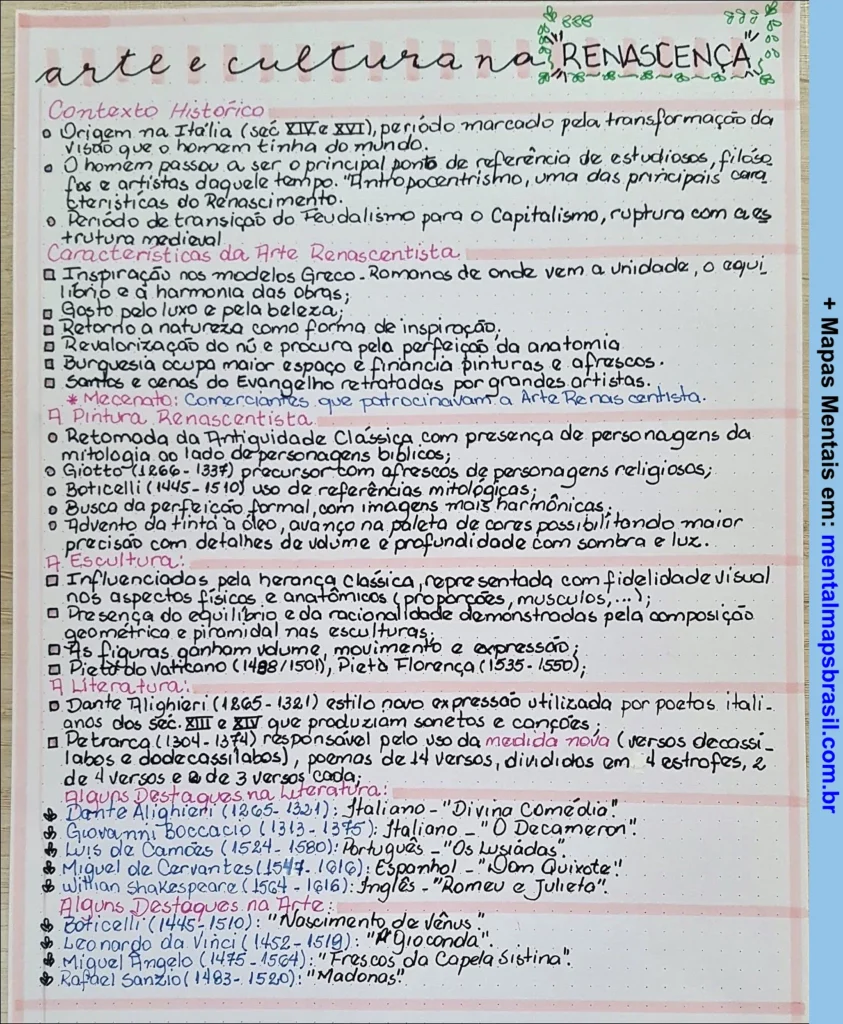 arte e cultura na RENASCENÇA
Contexto Histórico
Origem na Itália (séc XIV e XVI), período marcado pela transformação da
visão que o homem tinha do mundo.
O homem passou a ser o principal ponto de referência de estudiosos, filóso
fos e artistas daquele tempo. "Antropocentrismo, uma das principais cara
cterísticas do Renascimento.
Período de transição do Feudalismo para o Capitalismo, ruptura com a es
trutura medieval
Características da Arte Renascentista
Inspiração nos modelos Greco-Romanos de onde vem a unidade, o equi
líbrio e a harmonia das obras;
Gosto pelo luxo e pela beleza;
Retorno a natureza como forma de inspiração;
Revalorização do nú e procura pela perfeição da anatomia
Burquesia ocupa maior espaço e financia pinturas e afrescos.
Santos e cenas do Evangelho retratadas por grandes artistas.
* Mecenato: Comerciantes que patrocinavam a Arte Renascentista.
A Pintura Renascentista
Retomada da Antiguidade Clássica com presença de personagens da
mitologia ao lado de personagens bíblicos;
Giotto (1266-1337) precursor com afrescos de personagens religiosos;
Boticelli (1445-1510) uso de referências mitológicas;
Busca da perfeição formal, com imagens mais harmônicas;
Advento da tinta à óleo, avanço na paleta de cores possibilitando maior
precisão com detalhes de volume e profundidade com sombra e luz.
A Escultura:
Influenciados pela herança clássica, representada com fidelidade visual
nos aspectos físicos e anatômicos (proporções, musculos,...);
Presença do equilíbrio e da racionalidade demonstradas pela composição
geométrica e piramidal nas esculturas;
As figuras ganham volume, movimento e expressão;
Pietá do Vaticano (1488/1501), Pietá Florença (1535-1550);
A Literatura:
Dante Alighieri (1265-1321) estilo novo expressão utilizada por poetas itali-
anos dos séc. XIII e XIV que produziam sonetos e canções;
Petrarca (1304-1374) responsável pelo uso da medida nova (versos decassí-
labos e dodecassílabos), poemas de 14 versos, divididos em 4 estrofes, 2
de 4 versos e 2 de 3 versos cada;
Alguns Destaques na Literatura:
Dante Alighieri (1265-1321): Italiano - "Divina Comédia".
Giovanni Boccacio (1313-1375): Italiano - "O Decameron".
Luis de Camões (1524-1580): Português - "Os Lusíadas".
Miguel de Cervantes (1547-1616): Espanhol - "Dom Quixote".
Willian Shakespeare (1564-1616): Inglês - "Romeu e Julieta".
Alguns Destaques na Arte:
Boticelli (1445-1510): "Nascimento de Vênus"
Leonardo da Vinci (1452-1519): "A Gioconda".
Miguel Ângelo (1475-1564): "Frescos da Capela Sistina".
Rafael Sanzio (1483-1520): "Madonas".
+ Mapas Mentais em: mentalmapsbrasil.com.br